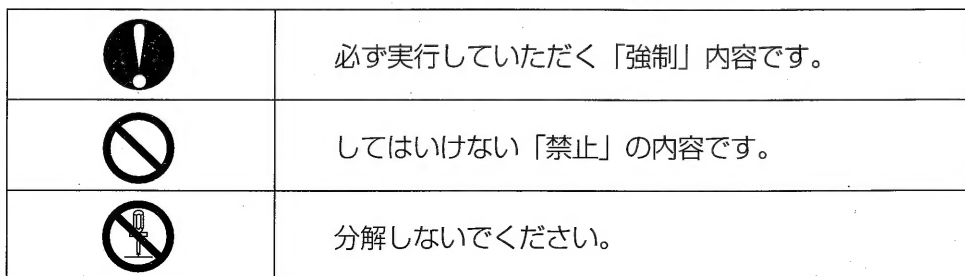 必ず実行していただく「強制」内容です。
してはいけない「禁止」の内容です。
分解しないでください。